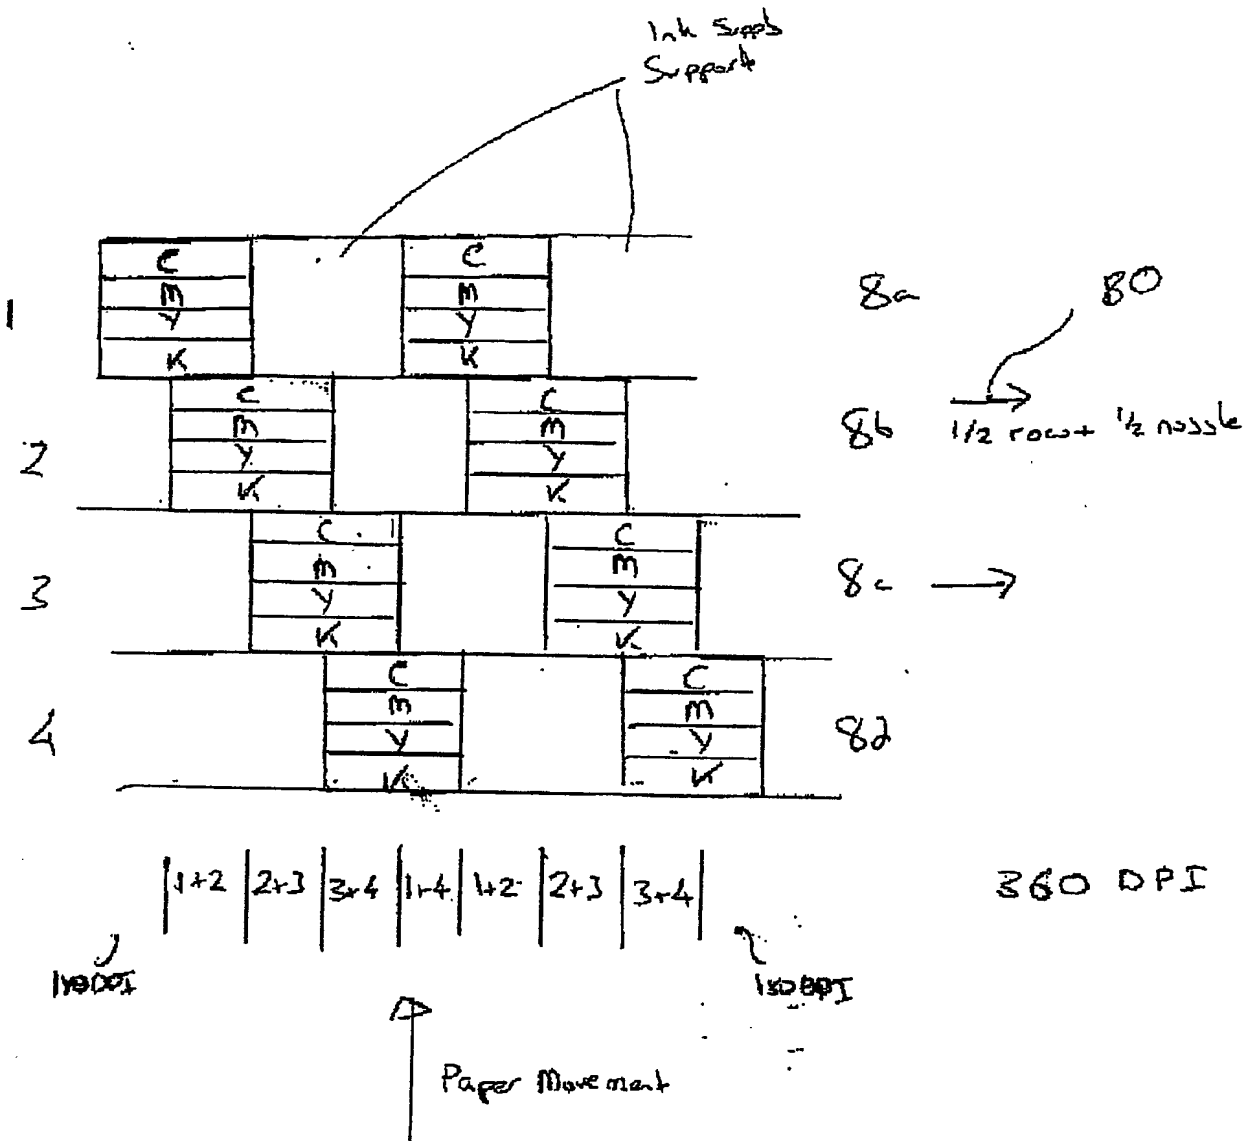 Ink Supply
Supports
1
C
M
Y
K
C
M
Y
K
8a
80
2
C
M
Y
K
C
M
Y
K
8b
1/2 row + 1/2 nozzle
3
C
M
Y
K
C
M
Y
K
8c
4
C
M
Y
K
C
M
Y
K
8d
1+2 2+3 3+4 1+4 1+2 2+3 3+4
360 DPI
180DPI
180DPI
Paper Movement